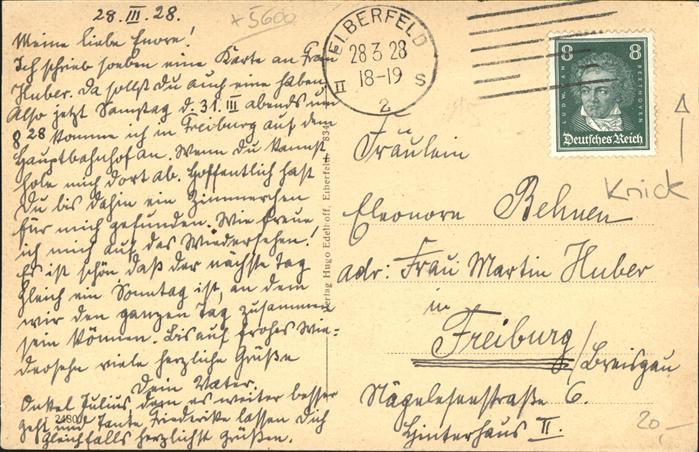 28. III. 28.
Meine liebe Enore!
Ich schrieb soeben eine Karte an Frau
Huber. Da sollst Du auch eine haben.
Also jetzt Samstag d. 31. III abends um
8 28 komme ich in Freiburg auf dem
Hauptbahnhof an. Wenn Du kannst
hole mich dort ab. Hoffentlich hast
Du bis dahin ein Zimmerchen
für mich gefunden. Wie freue
ich mich auf das Wiedersehen!
Es ist schön daß der nächste Tag
gleich ein Sonntag ist, an dem
wir den ganzen Tag zusammen
sein können. Bis auf frohes Wie-
dersehn viele herzliche Grüße
Dein Vater.
Onkel Julius, dem es weiter besser
geht und Tante Friederike lassen Dich
gleichfalls herzlichst grüßen.
+5600
ELBERFELD
28 3 28
18-19
II S
2
8 8
LUDWIG VAN BEETHOVEN
Deutsches Reich
Knick
Fräulein
Eleonore Behnen
adr: Frau Martin Huber
in
Freiburg
i/Breisgau
Nägeleseestraße 6.
Hinterhaus II.
20,-
Verlag Hugo Edelhoff, Elberfeld